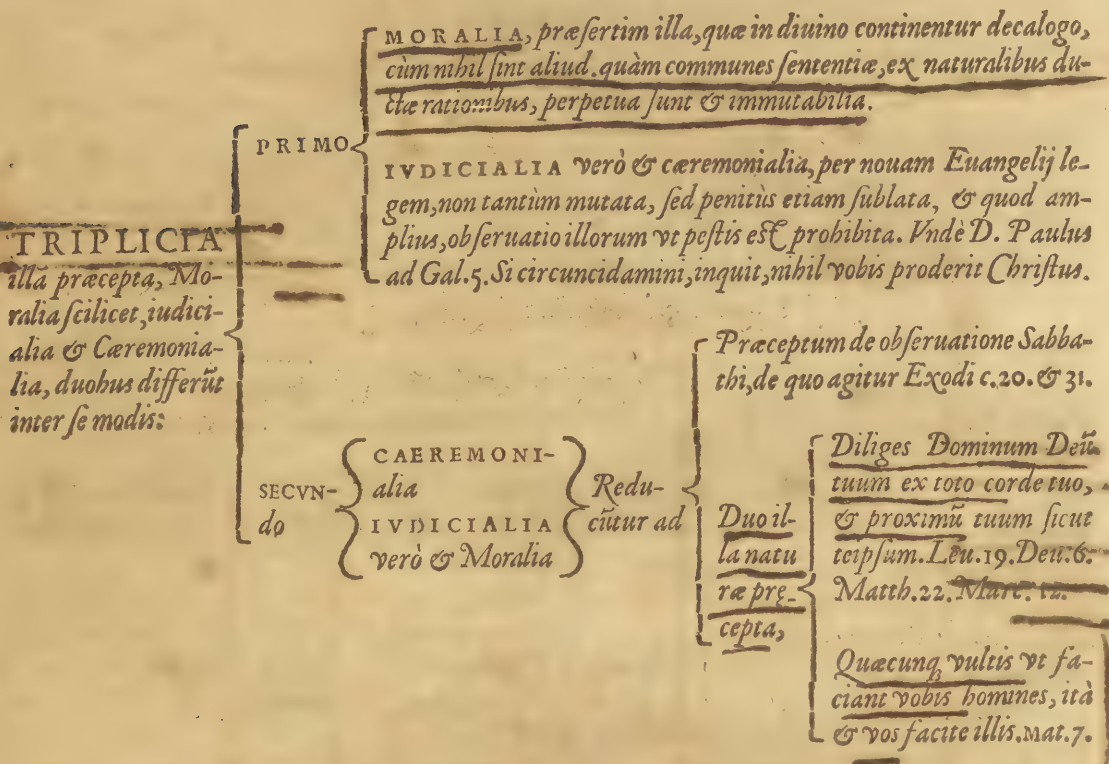 TRIPLICIA
illa præcepta, Mo-
ralia ſcilicet, iudici-
alia & Cæremonia-
lia, duobus differũt
inter ſe modis:
PRIMO
MORALIA, præſertim illa, quæ in diuino continentur decalogo,
cùm nihil ſint aliud quàm communes ſententiæ, ex naturalibus du-
ctæ rationibus, perpetua ſunt & immutabilia.
IVDICIALIA verò & cæremonialia, per nouam Euangelij le-
gem, non tantùm mutata, ſed penitùs etiam ſublata, & quod am-
plius, obſeruatio illorum vt peſtis eſt prohibita. Vndè D. Paulus
ad Gal. 5. Si circuncidamini, inquit, nihil vobis proderit Chriſtus.
SECVN-
do
CAEREMONI-
alia
IVDICIALIA
verò & Moralia
Redu-
cũtur ad
Præceptum de obſeruatione Sabba-
thi, de quo agitur Exodi c. 20. & 31.
Duo il-
la natu
ræ prę-
cepta,
Diliges Dominum Deũ
tuum ex toto corde tuo,
& proximũ tuum ſicut
teipſum. Leu. 19. Deu. 6.
Matth. 22. Marc. 12.
Quæcunqꝫ vultis vt fa-
ciant vobis homines, ità
& vos facite illis. Mat. 7.